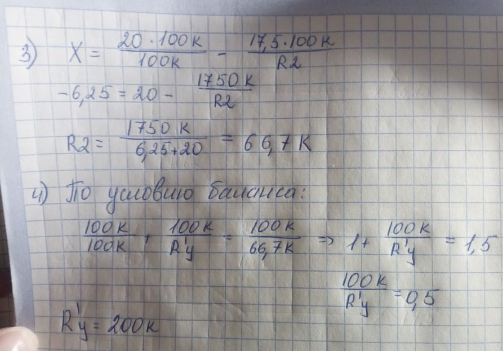 3) X = 20·100к/100к - 17,5·100к/R2
-6,25 = 20 - 1750 к/R2
R2 = 1750 к/6,25+20 = 66,7 к
4) По условию баланса:
100к/100к + 100к/R'у = 100к/66,7к => 1 + 100к/R'у = 1,5
100к/R'у = 0,5
R'у = 200к